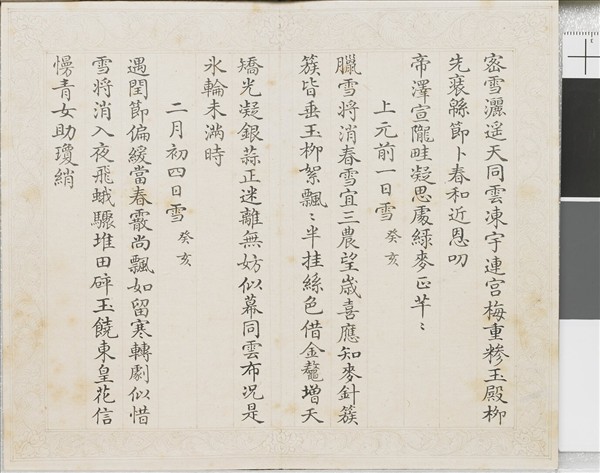 密雪灑遥天同雲凍宇連宫梅重糝玉殿柳
先裒緜節卜春和近恩叨
帝澤宣隴畦凝思處緑麥正芊〻
上元前一日雪 癸亥
臘雪将消春雪宜三農望歳喜應知麥針簇
簇皆垂玉柳絮飄〻半挂絲色借金鼇增天
矯光凝銀蒜正迷離無妨似幕同雲布况是
氷輪未滿時
二月初四日雪 癸亥
遇閏節偏緩當春霰尚飄如留寒轉劇似惜
雪将消入夜飛蛾驟堆田碎玉饒東皇花信
愓青女助瓊綃